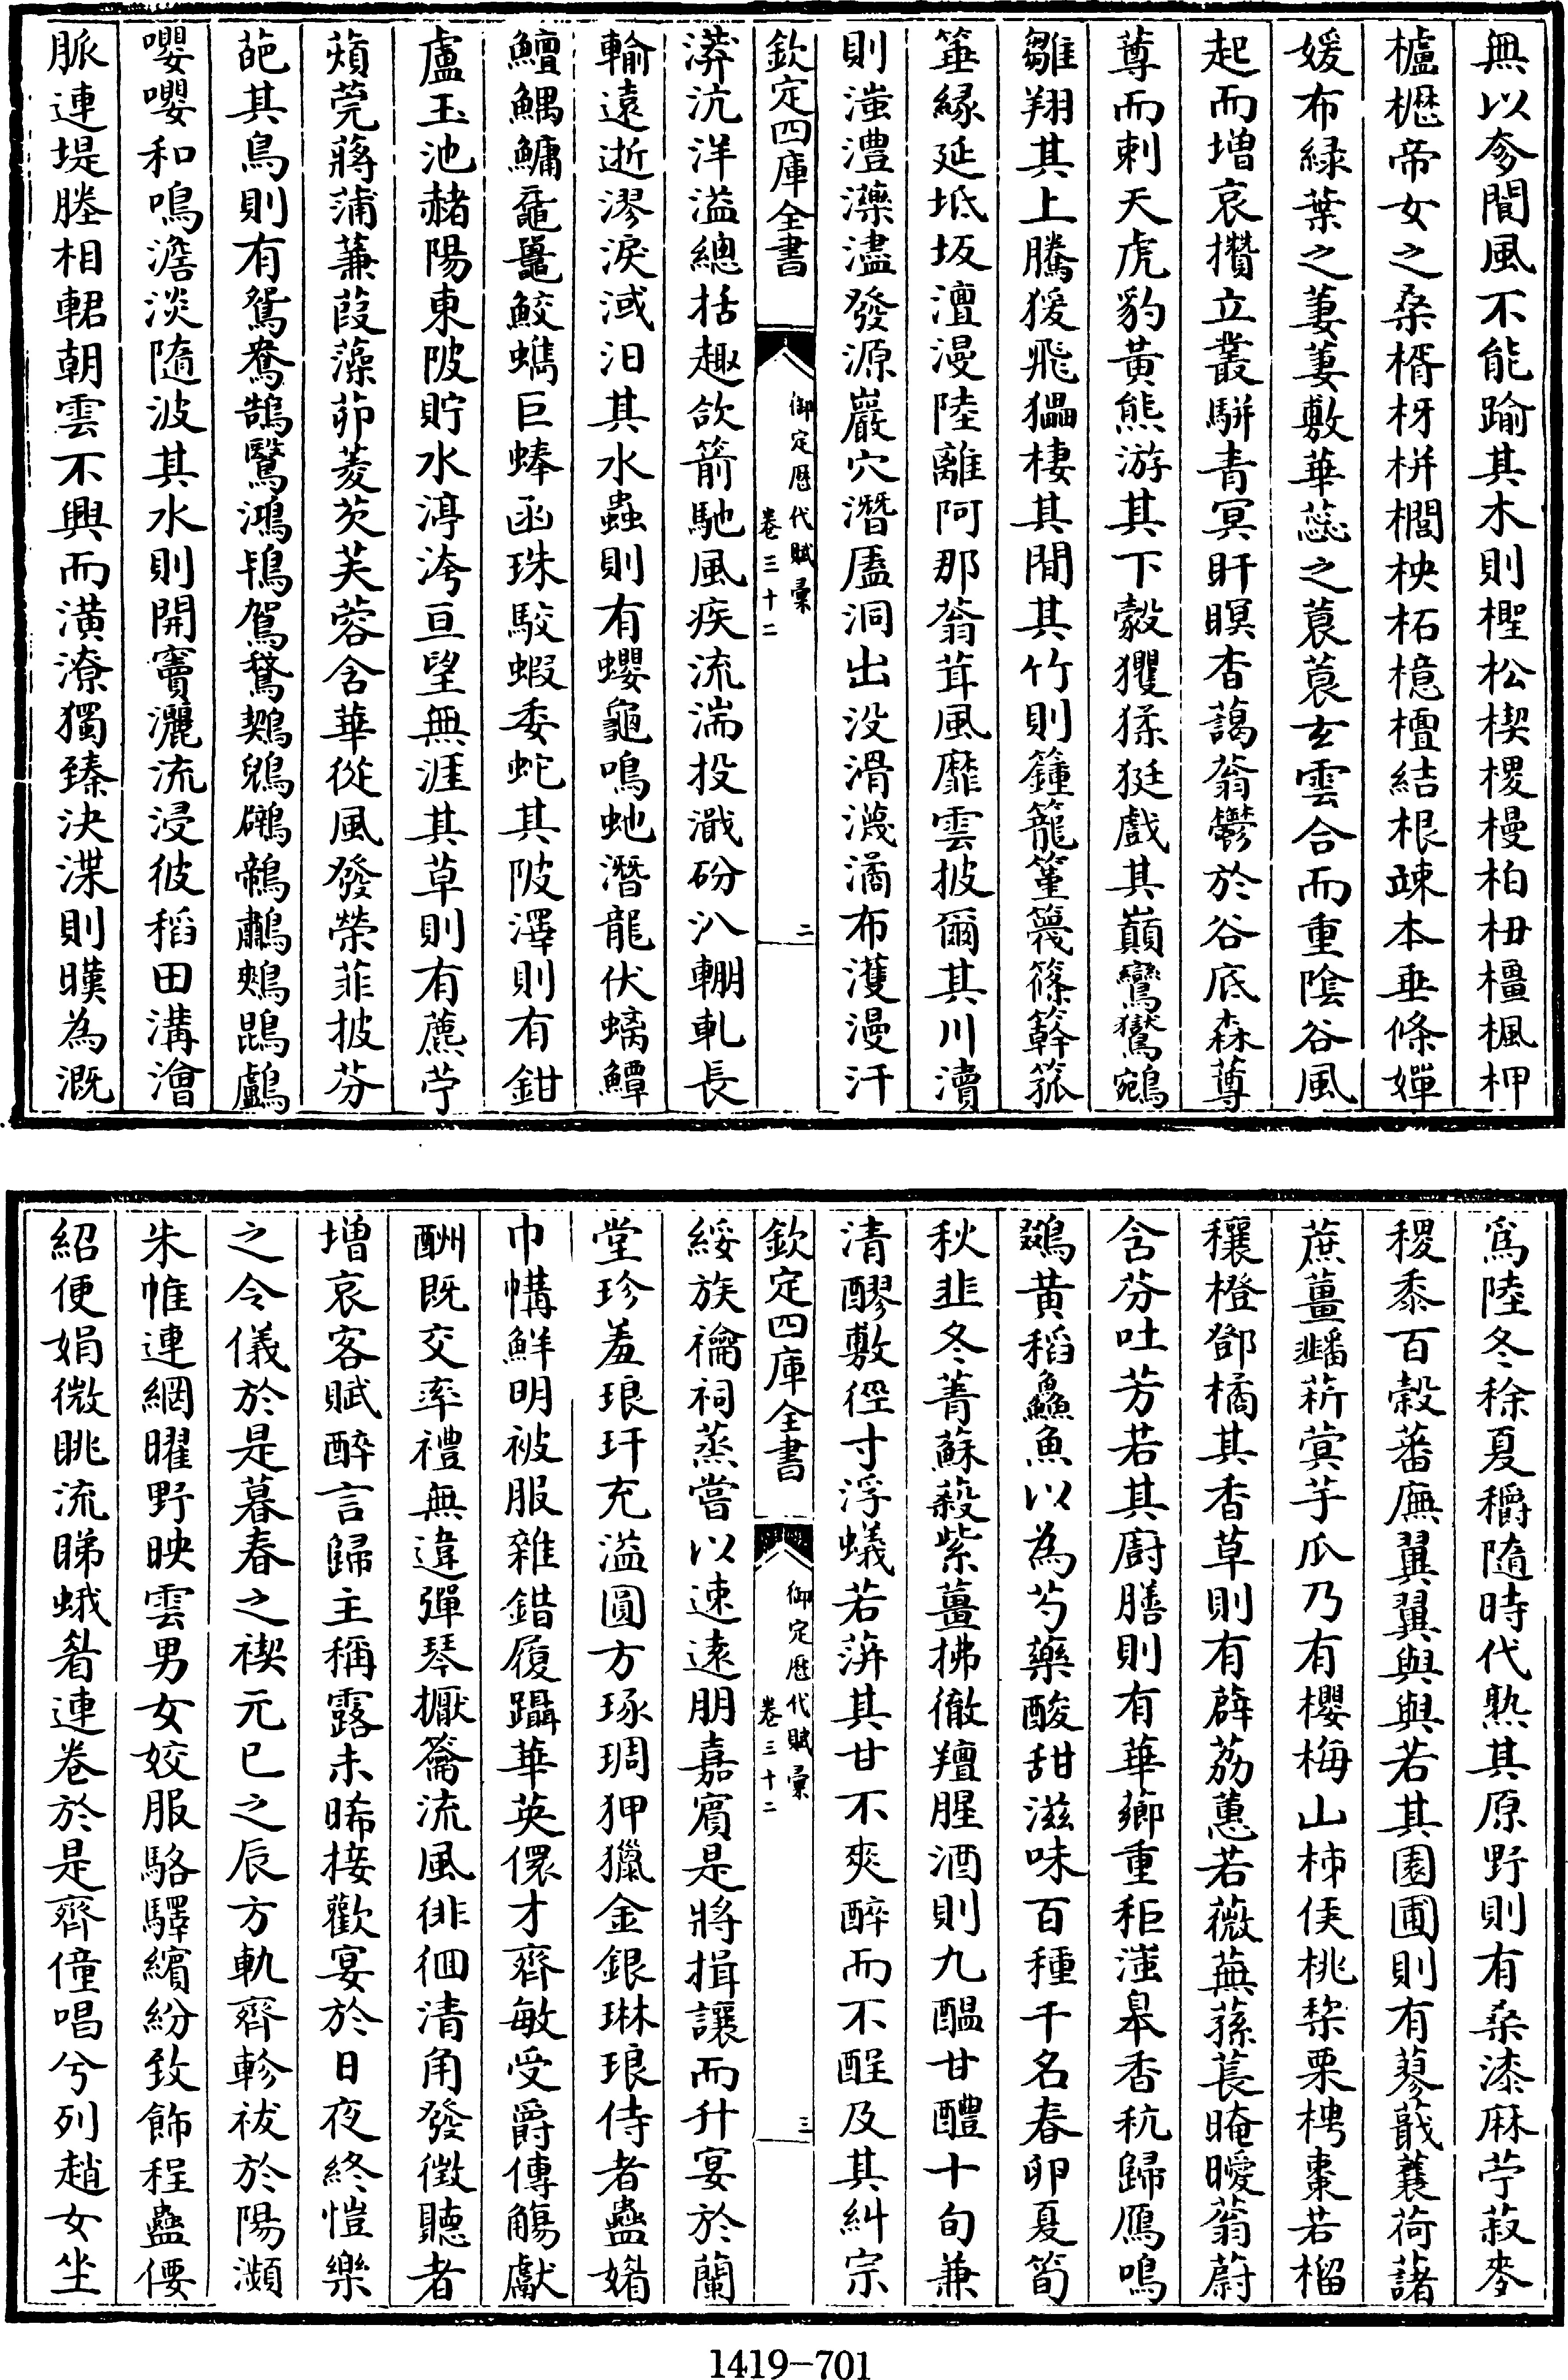 無以奓閬風不能踰其木則檉松楔㮨槾柏杻橿楓柙
櫨櫪帝女之桑楈枒栟櫚柍柘檍檀結根竦本垂條嬋
媛布緑葉之萋萋敷華蕊之蓑蓑玄雲合而重陰谷風
起而增哀攢立叢駢青冥盰瞑杳藹蓊鬱於谷底森䔿
䔿而刺天虎豹黄熊游其下縠玃猱㹶戲其巔鸞鸑鵷
雛翔其上騰猨飛蠝棲其間其竹則籦籠䈽篾篠簳箛
箠緣延坻坂澶漫陸離阿那蓊茸風靡雲披爾其川瀆
則滍澧藻濜發源巖穴潛㕎洞出没滑瀎潏布濩漫汗
欽定四庫全書
御定歷代賦彙
卷三十二
二
漭沆洋溢總括趣欱箭馳風疾流湍投濈砏汃輣軋長
輸遠逝漻淚淢汩其水蟲則有蠳龜鳴虵潛龍伏螭鱏
鱣鰅鱅黿鼉鮫蠵巨蜯函珠駮蝦委蛇其陂澤則有鉗
盧玉池赭陽東陂貯水渟洿亘望無涯其草則有藨苧
薠莞蔣蒲蒹葭藻茆菱芡芙蓉含華從風發榮菲披芬
葩其鳥則有鴛鴦鵠鷖鴻鴇駕鵞鷞鶂鸊鵜鷫鷞鵾鸕
嚶嚶和鳴澹淡隨波其水則開竇灑流浸彼稻田溝澮
脈連堤塍相輑朝雲不興而潢潦獨臻決渫則暵為溉
為陸冬稌夏穱隨時代熟其原野則有桑漆麻苧菽麥
稷黍百穀蕃廡翼翼與與若其園圃則有蓼蕺蘘荷藷
蔗薑䪤菥蓂芋瓜乃有櫻梅山柿侯桃棃栗梬棗若榴
穰橙鄧橘其香草則有薜荔蕙若薇蕪蓀萇晻曖蓊蔚
含芬吐芳若其廚膳則有華薌重秬滍皋香秔歸鴈鳴
鵽黄稻鱻魚以為芍藥酸甜滋味百種千名春卵夏筍
秋韭冬菁蘇蔱紫薑拂徹羶腥酒則九醖甘醴十旬兼
清醪敷徑寸浮蟻若蓱其甘不爽醉而不酲及其糾宗
欽定四庫全書
御定歷代賦彙
卷三十二
三
綏族禴祠蒸嘗以速遠朋嘉賓是將揖讓而升宴於蘭
堂珍羞琅玕充溢圓方琢琱狎獵金銀琳琅侍者蠱媚
巾㡚鮮明被服雜錯履躡華英儇才齊敏受爵傳觴獻
酬既交率禮無違彈琴擫籥流風徘徊清角發徵聽者
增哀客賦醉言歸主稱露未晞接歡宴於日夜終愷樂
之令儀於是暮春之禊元巳之辰方軌齊軫祓於陽瀕
朱帷連網曜野映雲男女姣服駱驛繽紛致飾程蠱偠
紹便娟微眺流睇蛾眉連卷於是齊僮唱兮列趙女坐
1419-701